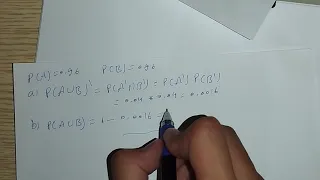 P(A)=0.96 P(B)=0.96
a) P(A∪B)' = P(A'∩B') = P(A') P(B')
= 0.04 * 0.04 = 0.0016
b) P(A∪B) = 1 - 0.0016